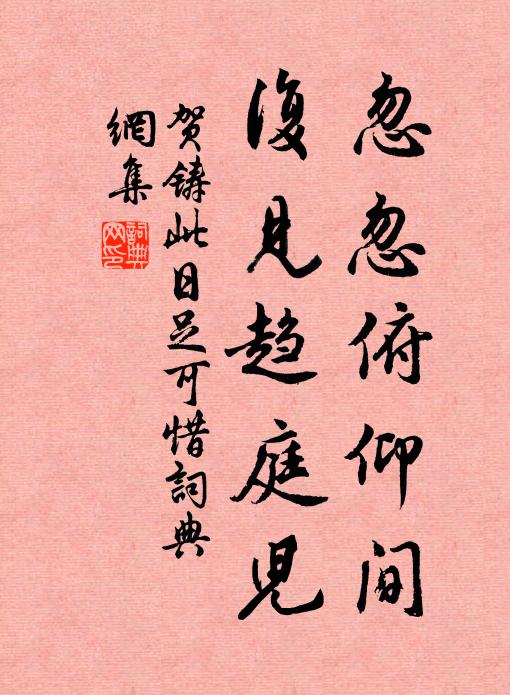 忽忽俯仰间
復見趋庭児
贺铸此日足可惜詞典
網集
詞典
网印